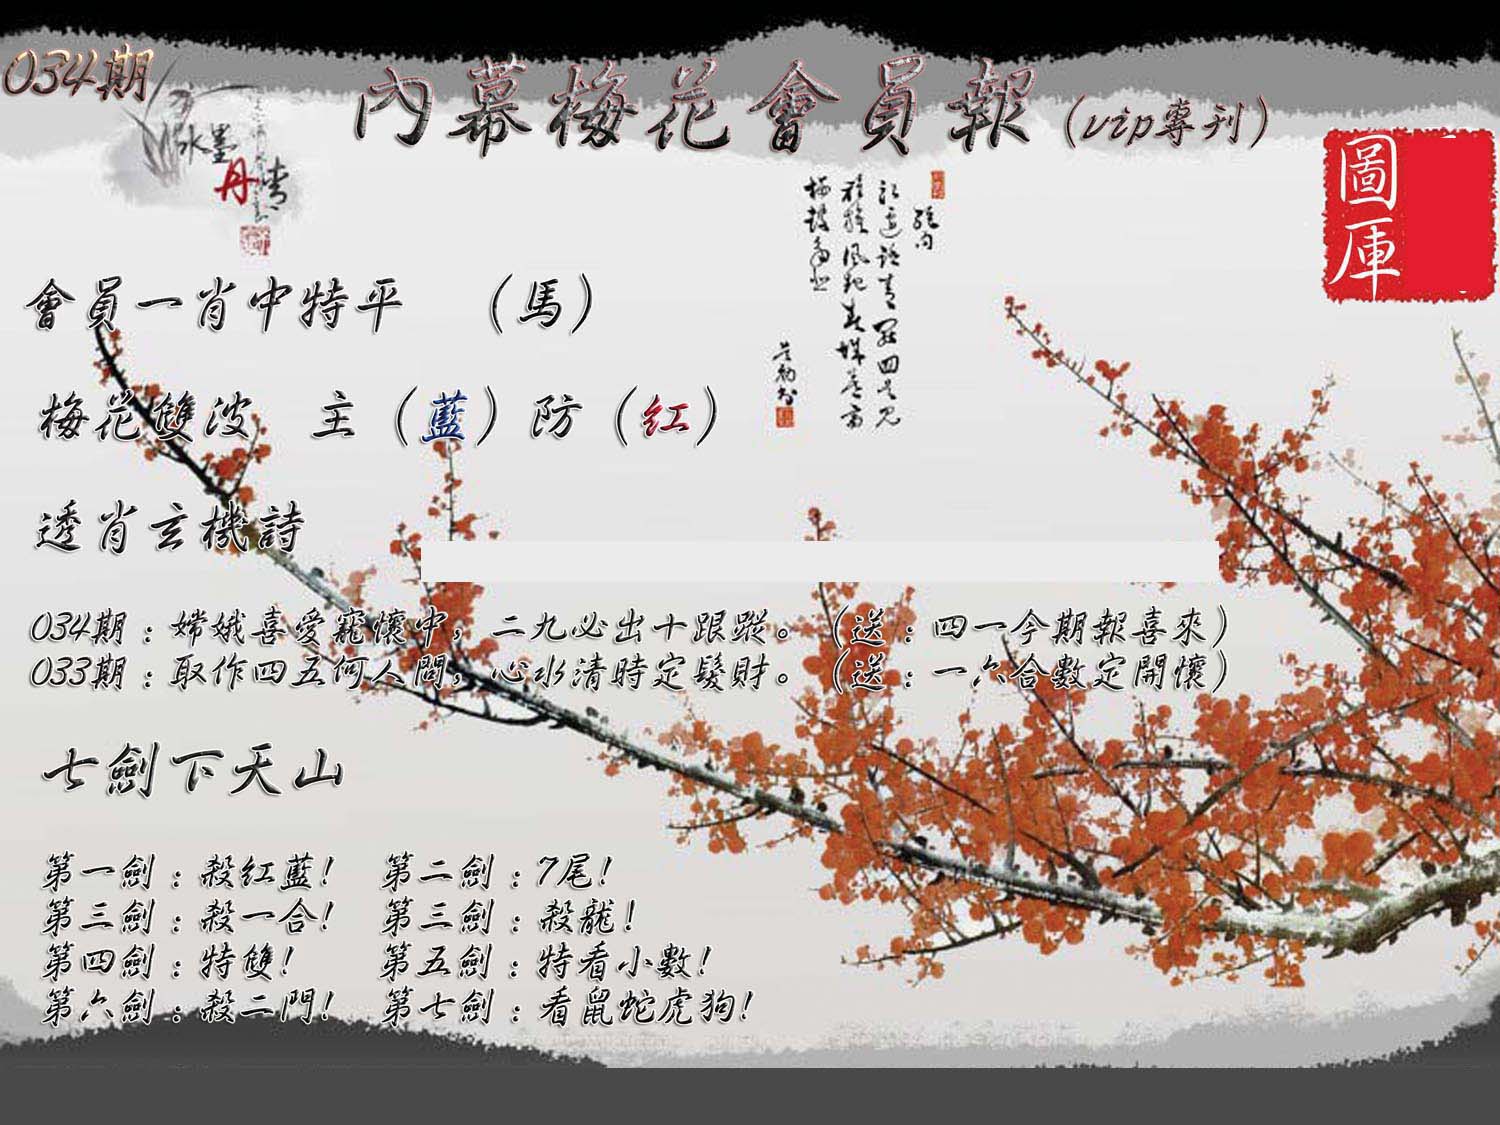 034期
內幕梅花會員報(vip專刊)
水墨
丹青
圖庫
會員一肖中特平 (馬)
梅花雙波 主(藍)防(紅)
透肖玄機詩
034期:嫦娥喜愛寵懷中,二九必出十跟蹤。(送:四一今期報喜來)
033期:取作四五何人問,心水清時定發財。(送:一六合數定開懷)
七劍下天山
第一劍:殺紅藍! 第二劍:7尾!
第三劍:殺一合! 第三劍:殺龍!
第四劍:特雙! 第五劍:特看小數!
第六劍:殺二門! 第七劍:看鼠蛇虎狗!